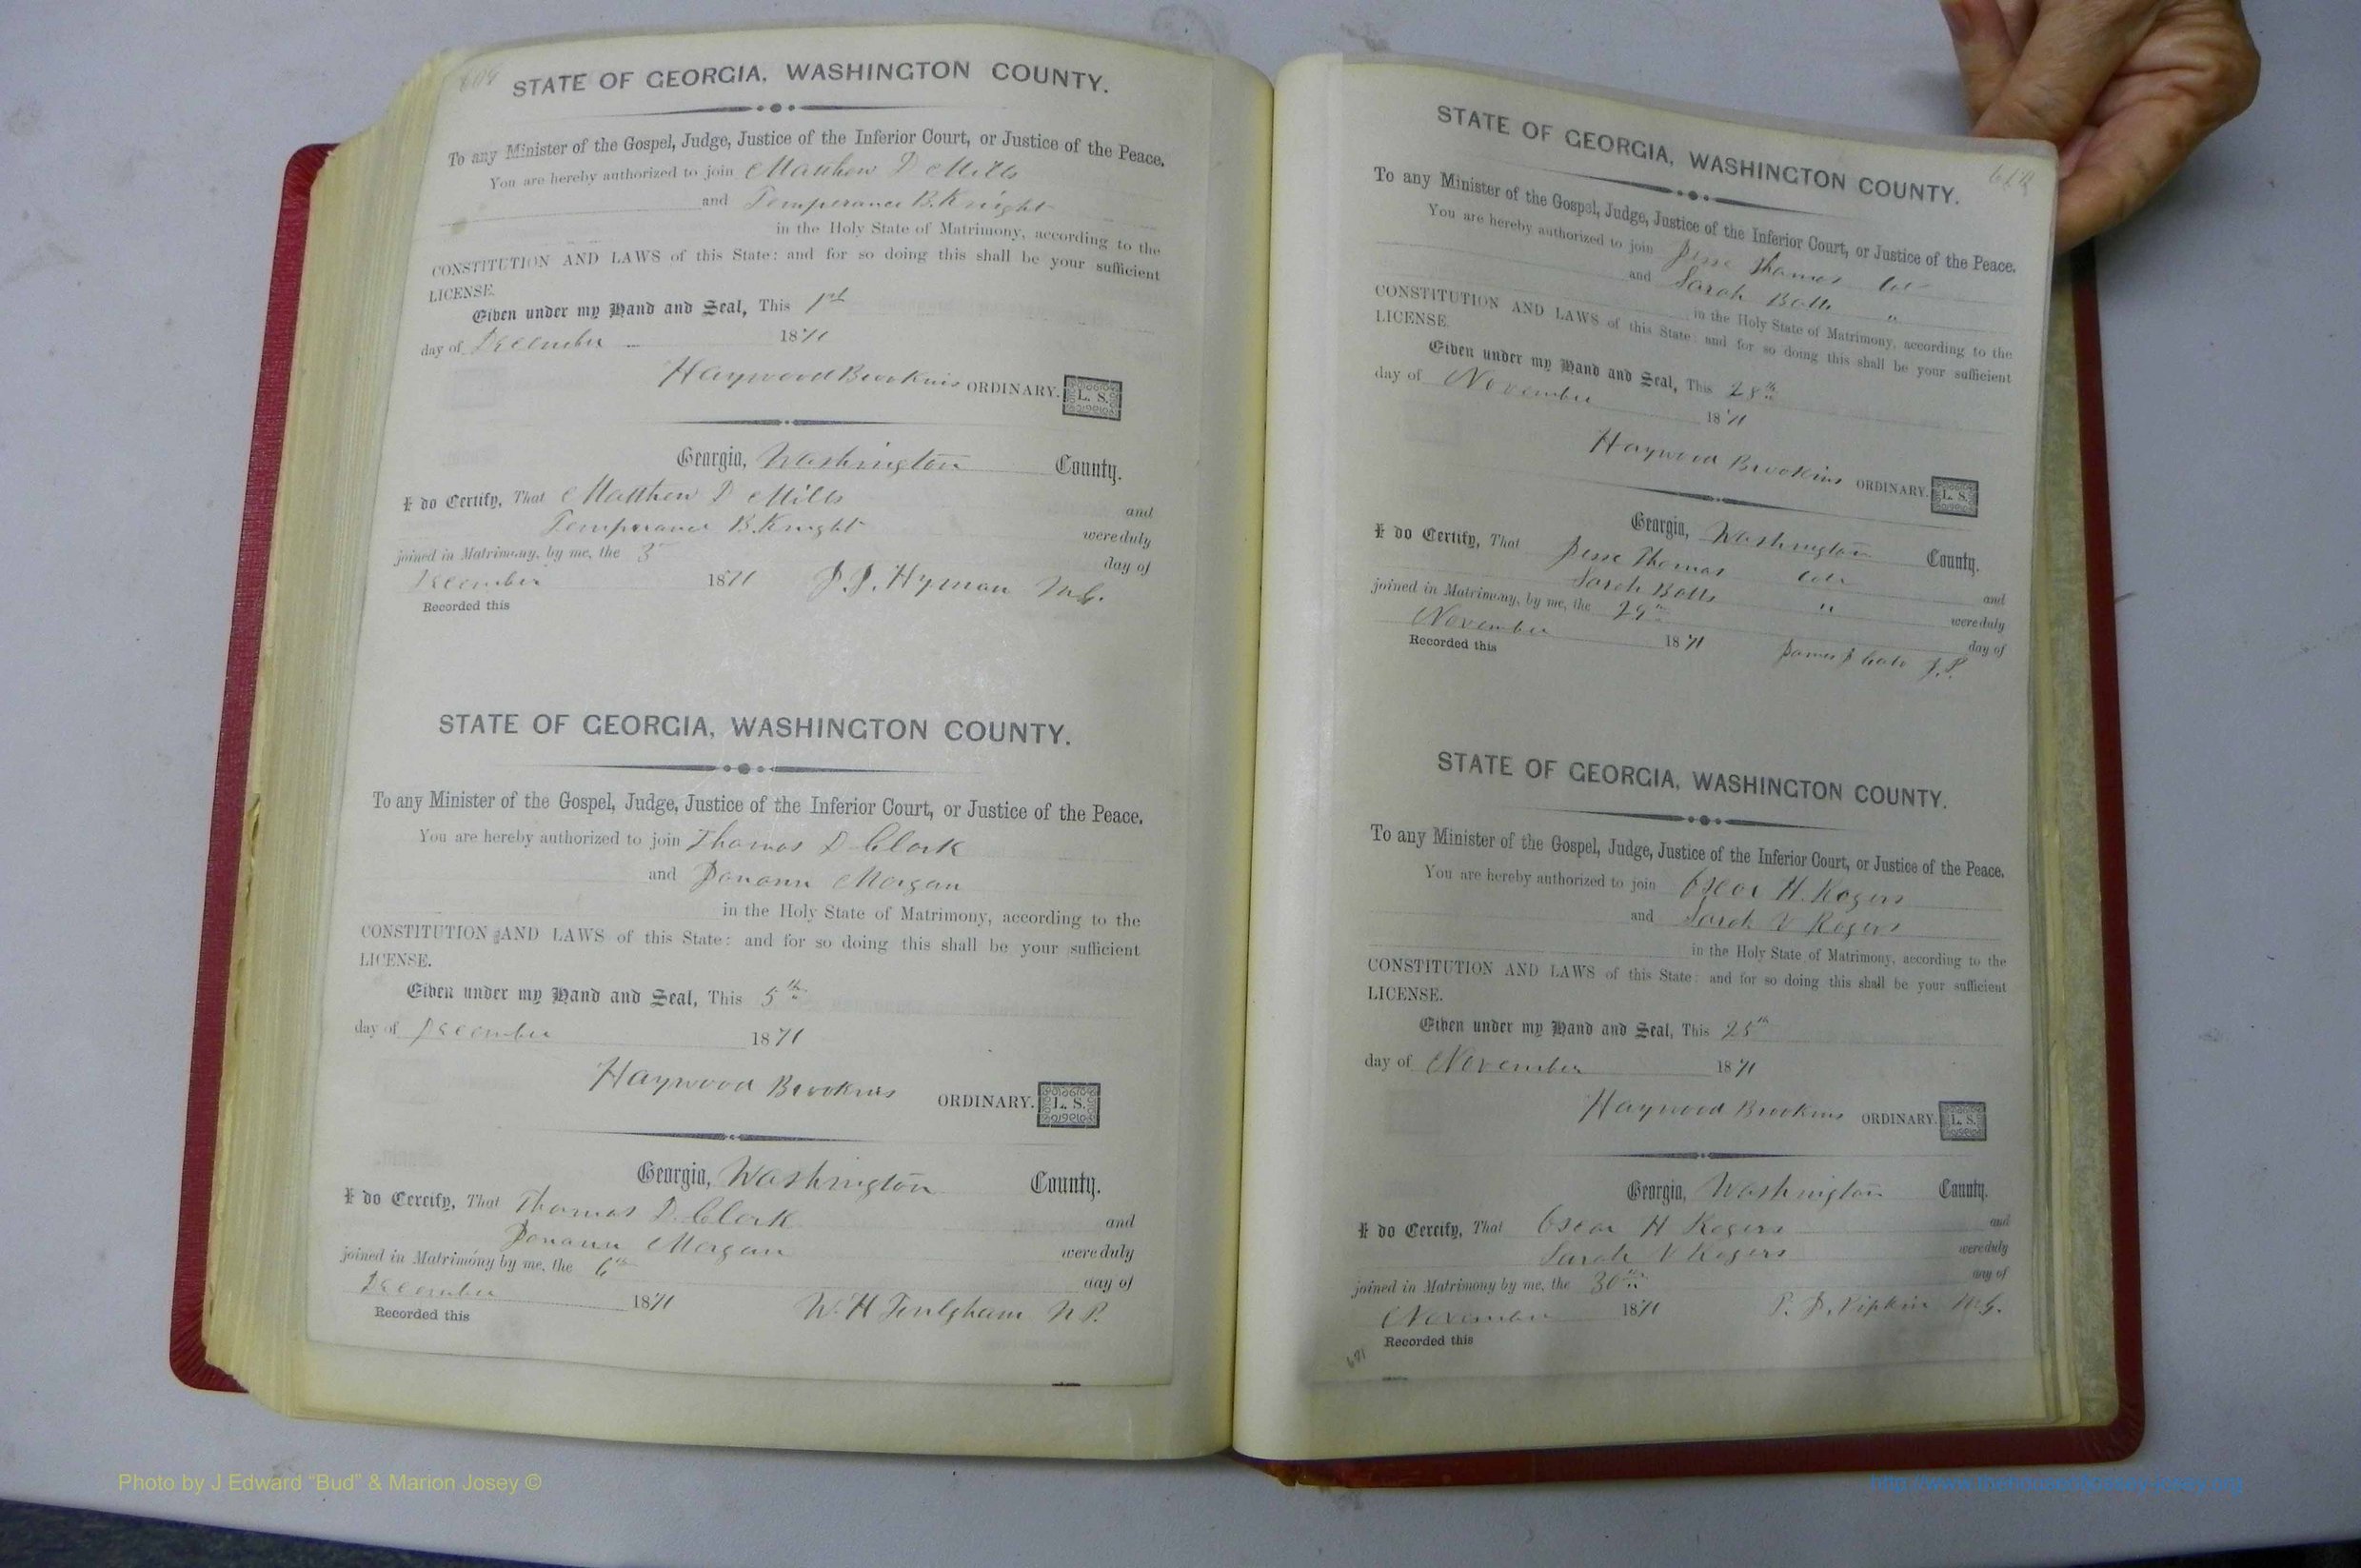 STATE OF GEORGIA, WASHINGTON COUNTY.
To any Minister of the Gospel, Judge, Justice of the Inferior Court, or Justice of the Peace.
You are hereby authorized to join Matthew D Mills
and Temperance B. Knight
in the Holy State of Matrimony, according to the
CONSTITUTION AND LAWS of this State: and for so doing this shall be your sufficient
LICENSE.
Given under my Hand and Seal, This 1st
day of December 1871
Haywood Brookins ORDINARY. L. S.
Georgia, Washington County.
I do Certify, That Matthew D Mills and
Temperance B. Knight were duly
joined in Matrimony, by me, the 3 day of
December 1871 J. J. Hyman M.G.
Recorded this
STATE OF GEORGIA, WASHINGTON COUNTY.
To any Minister of the Gospel, Judge, Justice of the Inferior Court, or Justice of the Peace.
You are hereby authorized to join Thomas D Clark
and Morgan
in the Holy State of Matrimony, according to the
CONSTITUTION AND LAWS of this State: and for so doing this shall be your sufficient
LICENSE.
Given under my Hand and Seal, This 5th
day of December 1871
Haywood Brookins ORDINARY. L. S.
Georgia, Washington County.
I do Certify, That Thomas D. Clark and
Morgan were duly
joined in Matrimony by me, the 6th day of
December 1871 W. H N.P.
Recorded this
STATE OF GEORGIA, WASHINGTON COUNTY.
To any Minister of the Gospel, Judge, Justice of the Inferior Court, or Justice of the Peace.
You are hereby authorized to join Jesse Thomas Col
and Sarah Batts "
in the Holy State of Matrimony, according to the
CONSTITUTION AND LAWS of this State: and for so doing this shall be your sufficient
LICENSE.
Given under my Hand and Seal, This 28th
day of November 1871
Haywood Brookins ORDINARY. L. S.
Georgia, Washington County.
I do Certify, That Jesse Thomas Col and
Sarah Batts " were duly
joined in Matrimony, by me, the 29th day of
November 1871 James J.P.
Recorded this
STATE OF GEORGIA, WASHINGTON COUNTY.
To any Minister of the Gospel, Judge, Justice of the Inferior Court, or Justice of the Peace.
You are hereby authorized to join Oscar H. Rogers
and Sarah V Rogers
in the Holy State of Matrimony, according to the
CONSTITUTION AND LAWS of this State: and for so doing this shall be your sufficient
LICENSE.
Given under my Hand and Seal, This 25th
day of November 1871
Haywood Brookins ORDINARY. L. S.
Georgia, Washington County.
I do Certify, That Oscar H Rogers and
Sarah V Rogers were duly
joined in Matrimony by me, the 30th day of
November 1871 P. J. Pipkin M.G.
Recorded this
Photo by J Edward "Bud" & Marion Josey ©